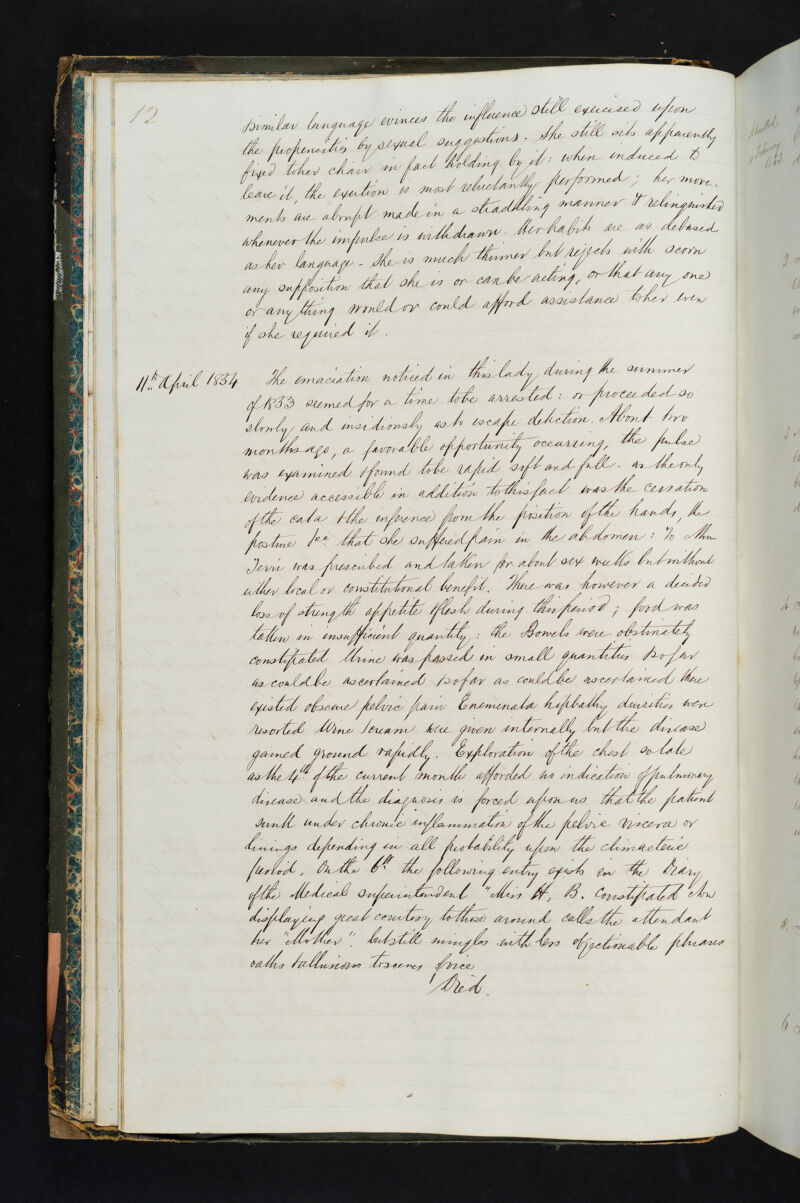 12
similar language evinces the influence still exercised upon
the propensities by sexual suggestions. She still sits apparently
fixed to her chair in fact holding by it: when induced to
leave it, the exertion is most reluctantly performed; her move-
ments are abrupt made in a straddling manner & relinquished
whenever the impulse is withdrawn. Her habits are as debased
as her language - She is much thinner but rejects with scorn
any supposition that she is or can be acting, or that any one
or any thing would or could afford assistance to her even
if she required it.
11th April 1834 The emaciation noticed in this lady during the summer
of 1833 seemed for a time to be arrested: or proceeded so
slowly and insidiously as to escape detection. About two
months ago, a favorable opportunity occurring, the pulse
was examined & found to be rapid soft and full. as the only
evidence accessible in addition to this fact was the cessation
of the cata & the inference from the position of the hands, the
posture &c. that she suffered pain in the abdomen:
Ferri was prescribed and taken for about six weeks but without
either local or constitutional benefit. There was however a decided
loss of strength appetite & flesh during this period; food was
taken in insufficient quantity: the Bowels were obstinately
constipated Urine was passed in small quantities & so far
as could be ascertained & so far as could be ascertained there
existed obscure pelvic pain Enemenata hipbaths were
resorted Wine & cream were given internally but the disease
gained ground rapidly. Exploration of the chest so late
as the 4th of the current month afforded no indication of pulmonary
disease and the diagnosis is forced upon us that the patient
sunk under chronic inflammation of the pelvic viscera or
linings depending in all probability upon the climacteric
period. On the 6th the following entry exists in the Diary
of the Medical Superintendent "Miss H. B. Constipated
displaying great courtesy to those around calls the attendant
her "Mother". but still mingles with less objectionable phrases
oaths & allusions to
Died.
Admitted
February
1833